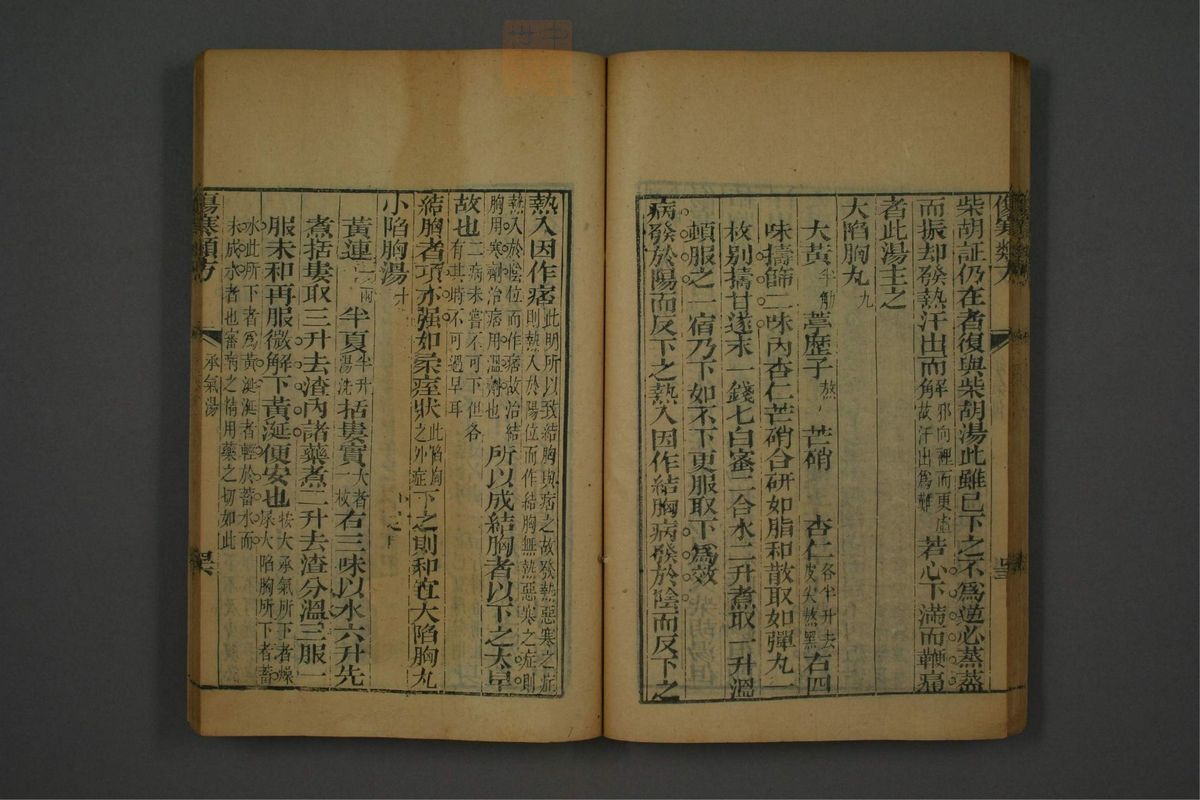 柴胡証仍在者復與柴胡湯此雖已下之不爲逆必蒸蒸
而振却發熱汗出而解邪向裡而更虛角故汗出爲難若心下滿而鞕痛
者此湯主之
大陷胸丸九
大黃半觔葶歷子熬芒硝杏仁各半升去皮尖熬黑右四
味擣篩二味內杏仁芒硝合研如脂和散取如彈丸一
枚別擣甘遂末一錢七白蜜二合水二升煮取一升溫
頓服之一宿乃下如不下更服取下爲效
病發於陽而反下之熱入因作結胸病發於陰而反下之
傷寒類方
熱入因作痞此明所以致結胸與痞之故發熱惡寒之症則熱入於陽位而作結胸無熱惡寒之症則熱入於陰位而作痞故治結胸用寒劑治痞用溫劑也所以成結胸者以下之太早
故也二病未嘗不可下但各有其時不可過早耳
結胸者項亦强如柔痓狀此陷胸之外症下之則和在大陷胸丸
小陷胸湯十
黃連一兩半夏半升湯洗括蔞實大者一枚右三味以水六升先
煮括蔞取三升去渣內諸藥煮二升去渣分溫三服一
服未和再服微解下黃涎便安也按大承氣所下者燥屎大陷胸所下者蓄
水此所下者爲黃涎涎者輕於蓄水而未成水者也審病之精用藥之切如此
傷寒類方
承氣湯